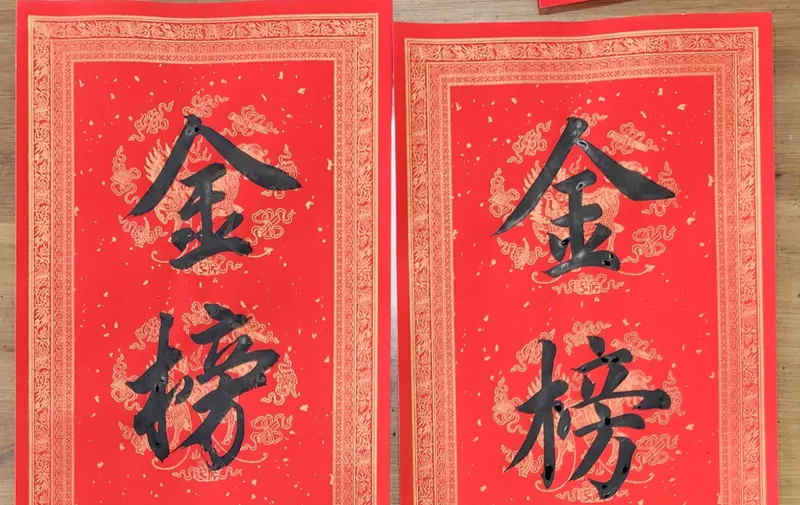 金榜
金榜